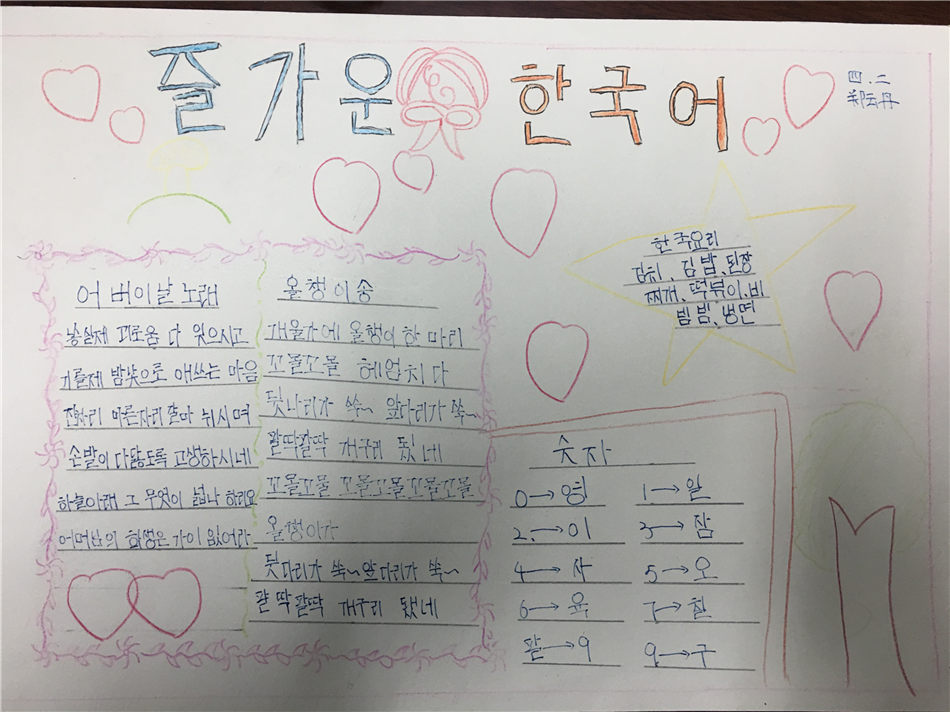 즐가운 한국어
四.二
郑云丹
한국요리
김치、김밥、된장
찌개、떡뽀이、비
빔밥、냉면
어버이날 노래
낳실제 괴로움 다 잊으시고
기를제 밤낮으로 애쓰는 마음
진자리 마른자리 갈아 뉘시며
손발이 다닳도록 고생하시네
하늘아래 그 무엇이 넓다 하리오
어머님의 희생은 가이 없어라
올챙이송
개울가에 올챙이 한 마리
꼬물꼬물 헤엄치다
뒷다리가 쑥~ 앞다리가 쑥~
팔딱팔딱 개구리 됬네
꼬물꼬물 꼬물꼬물 꼬물꼬물
올챙이가
뒷다리가 쑥~ 앞다리가 쑥~
팔딱팔딱 개구리 됐네
숫자
0→영 1→일
2→이 3→삼
4→사 5→오
6→육 7→칠
팔→9 9→구